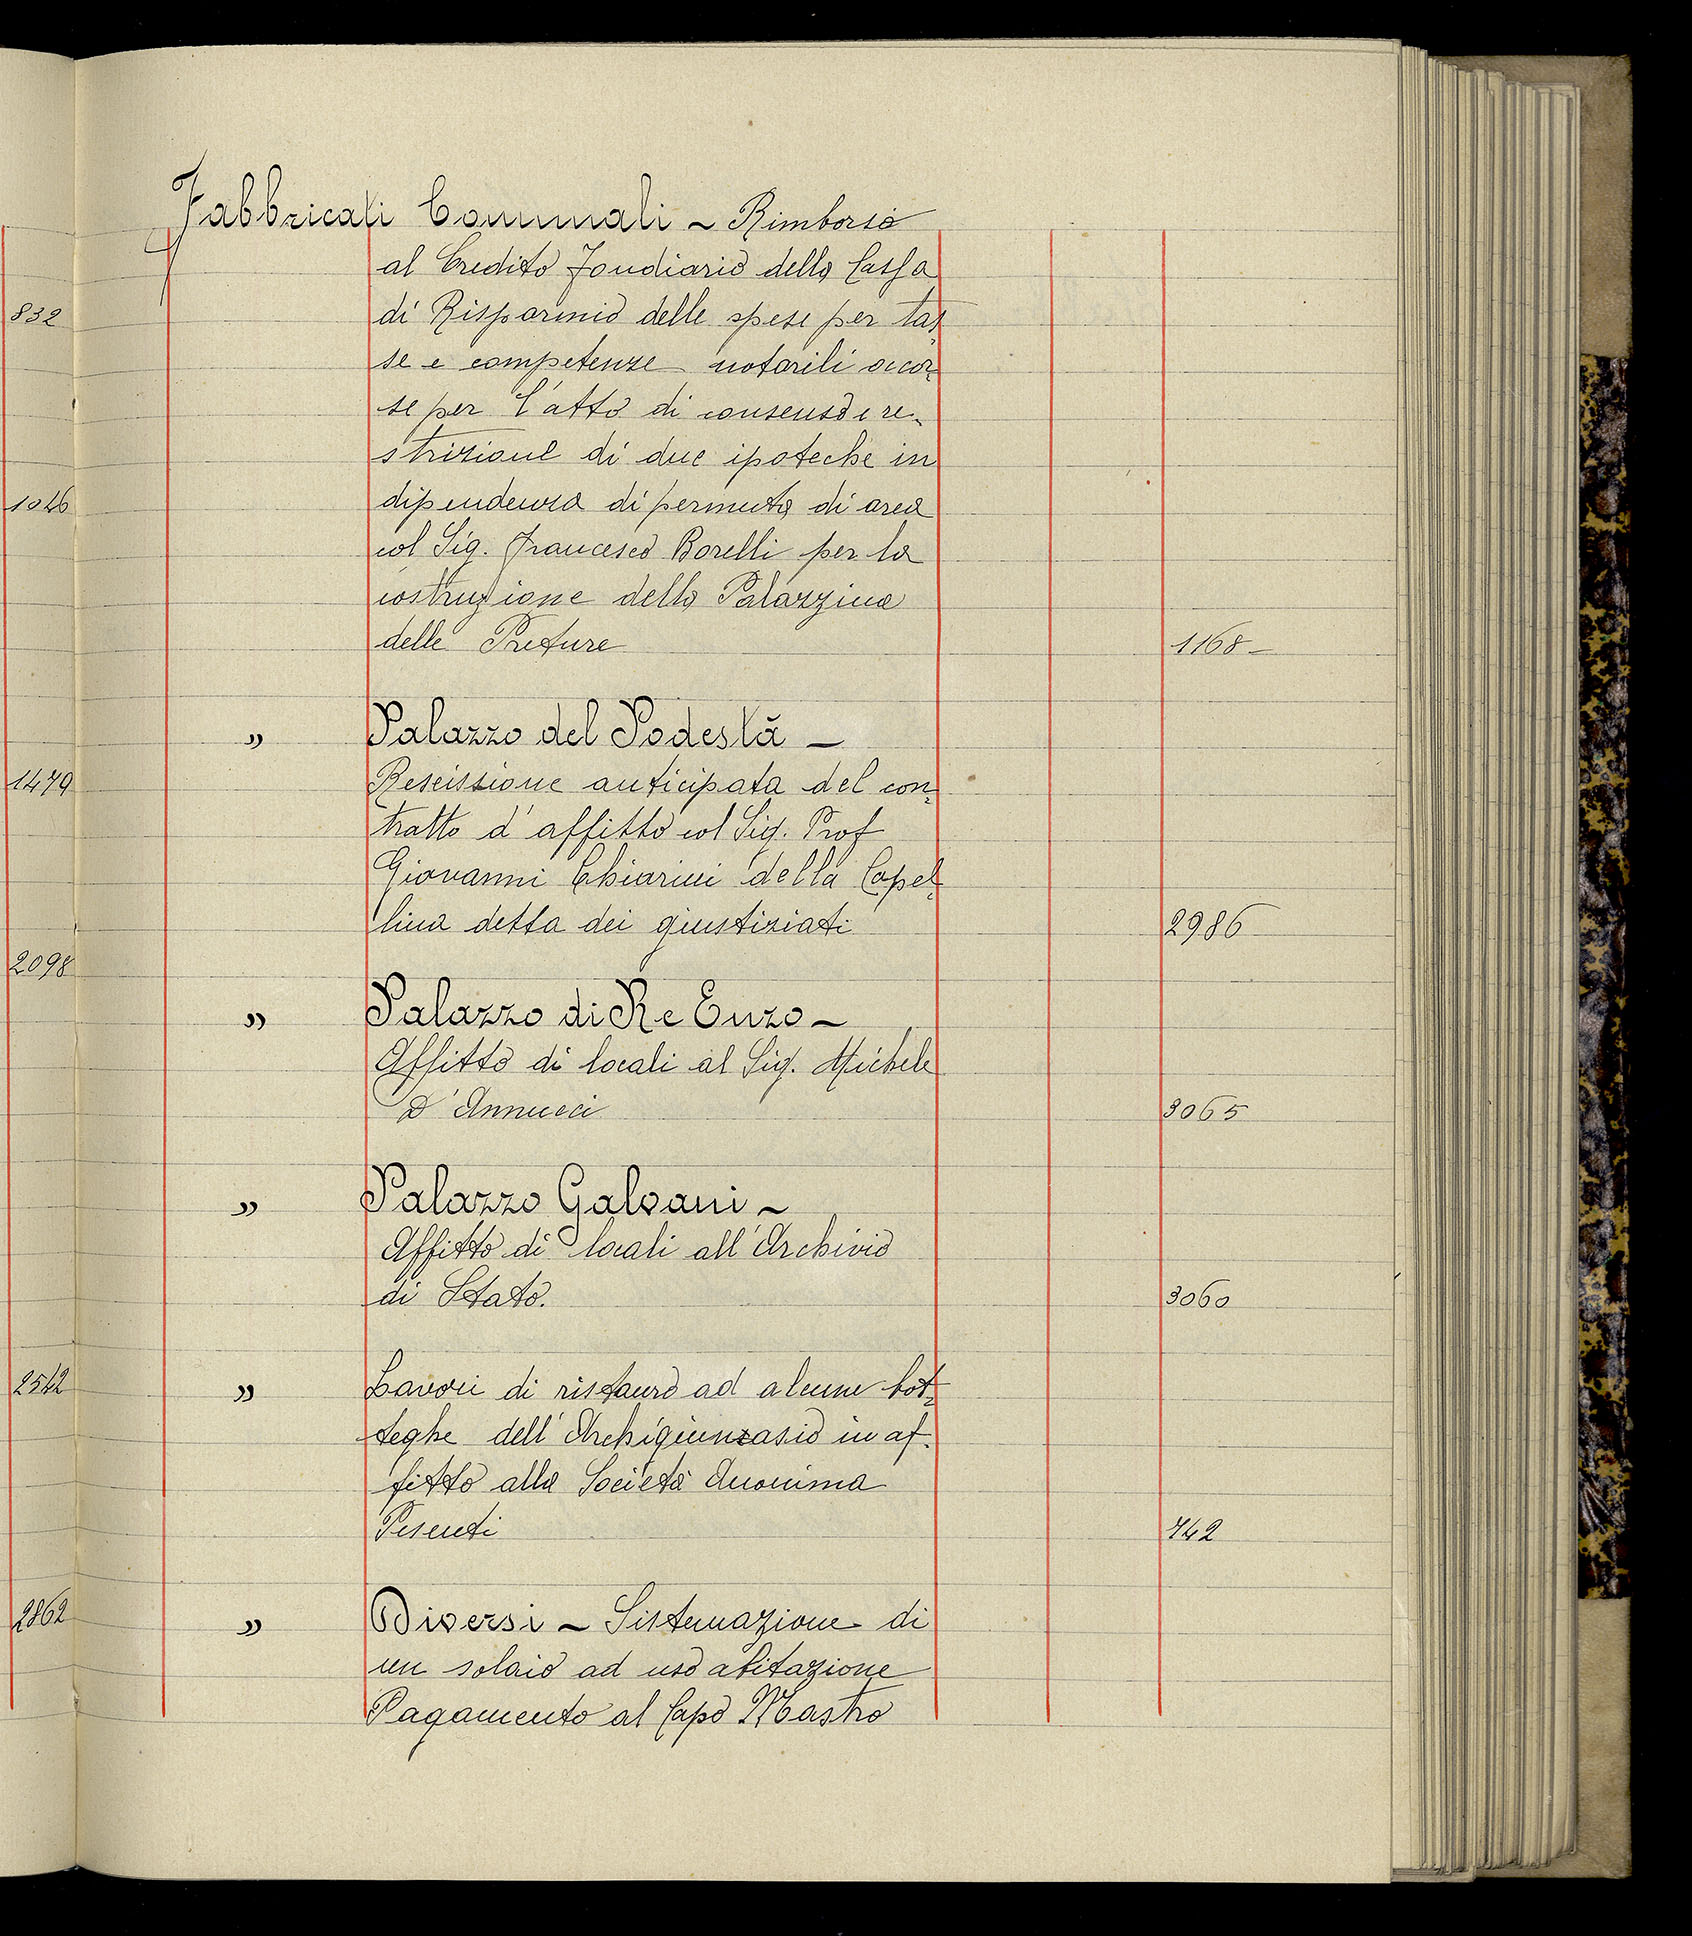 Fabbricati Comunali – Rimborso
al Credito Fondiario della Cassa
832
di Risparmio delle spese per tas
se e competenze notarili occor=
se per l'atto di consenso e re-
strizione di due ipoteche in
1046
dipendenza di permuta di area
col Sig. Francesco Borelli per la
costruzione della Palazzina
delle Preture 1168 –
" Palazzo del Podestà –
1479
Rescissione anticipata del con=
tratto d'affitto col Sig. Prof
Giovanni Chiarini della Capel=
lina detta dei giustiziati 2986
2098
" Palazzo di Re Enzo –
Affitto di locali al Sig. Michele
D'Annucci 3065
" Palazzo Galvani –
Affitto di locali all'Archivio
di Stato. 3060
2542
" Lavori di ristauro ad alcune bot=
teghe dell'Archiginnasio in af-
fitto alla Società Anonima
Pesenti 742
2862
" Diversi – Sistemazione di
un solaio ad uso abitazione
Pagamento al Capo Mastro